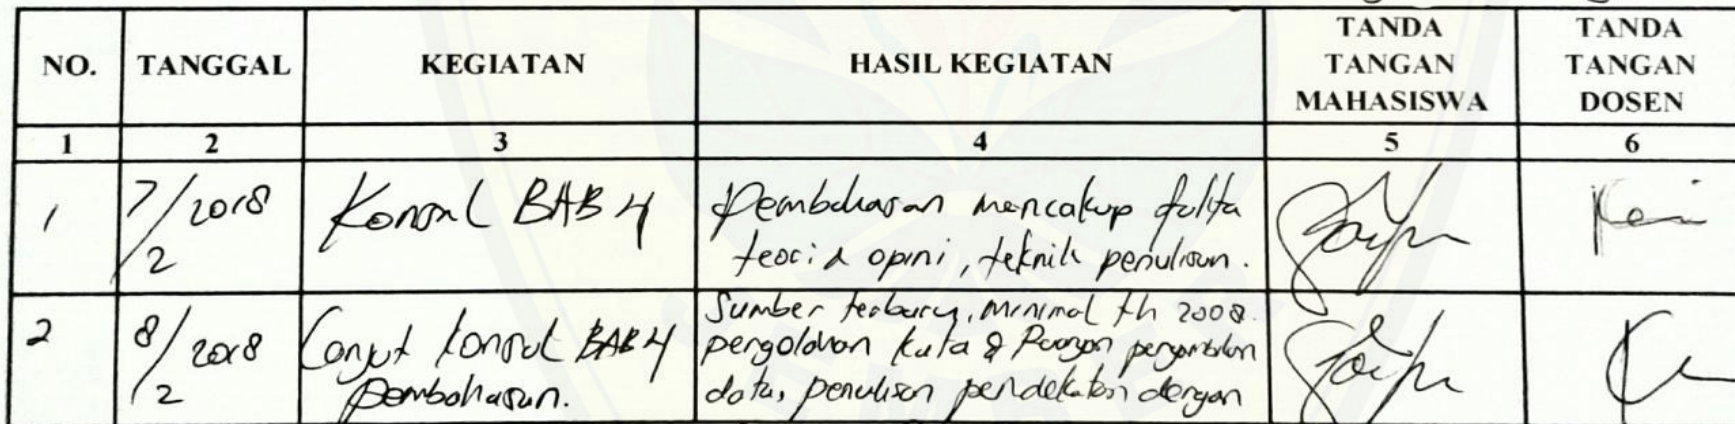 NO. TANGGAL KEGIATAN HASIL KEGIATAN TANDA TANGAN MAHASISWA TANDA TANGAN DOSEN
1 2 3 4 5 6
1 7/2 2018 Konsul BAB 4 Pembahasan mencakup fakta
teori & opini, teknik penulisan.
2 8/2 2018 Lanjut konsul BAB 4 Sumber terbaru, minimal th 2008.
pembahasan. pengolahan kata &
data, penulisan pendekatan dengan